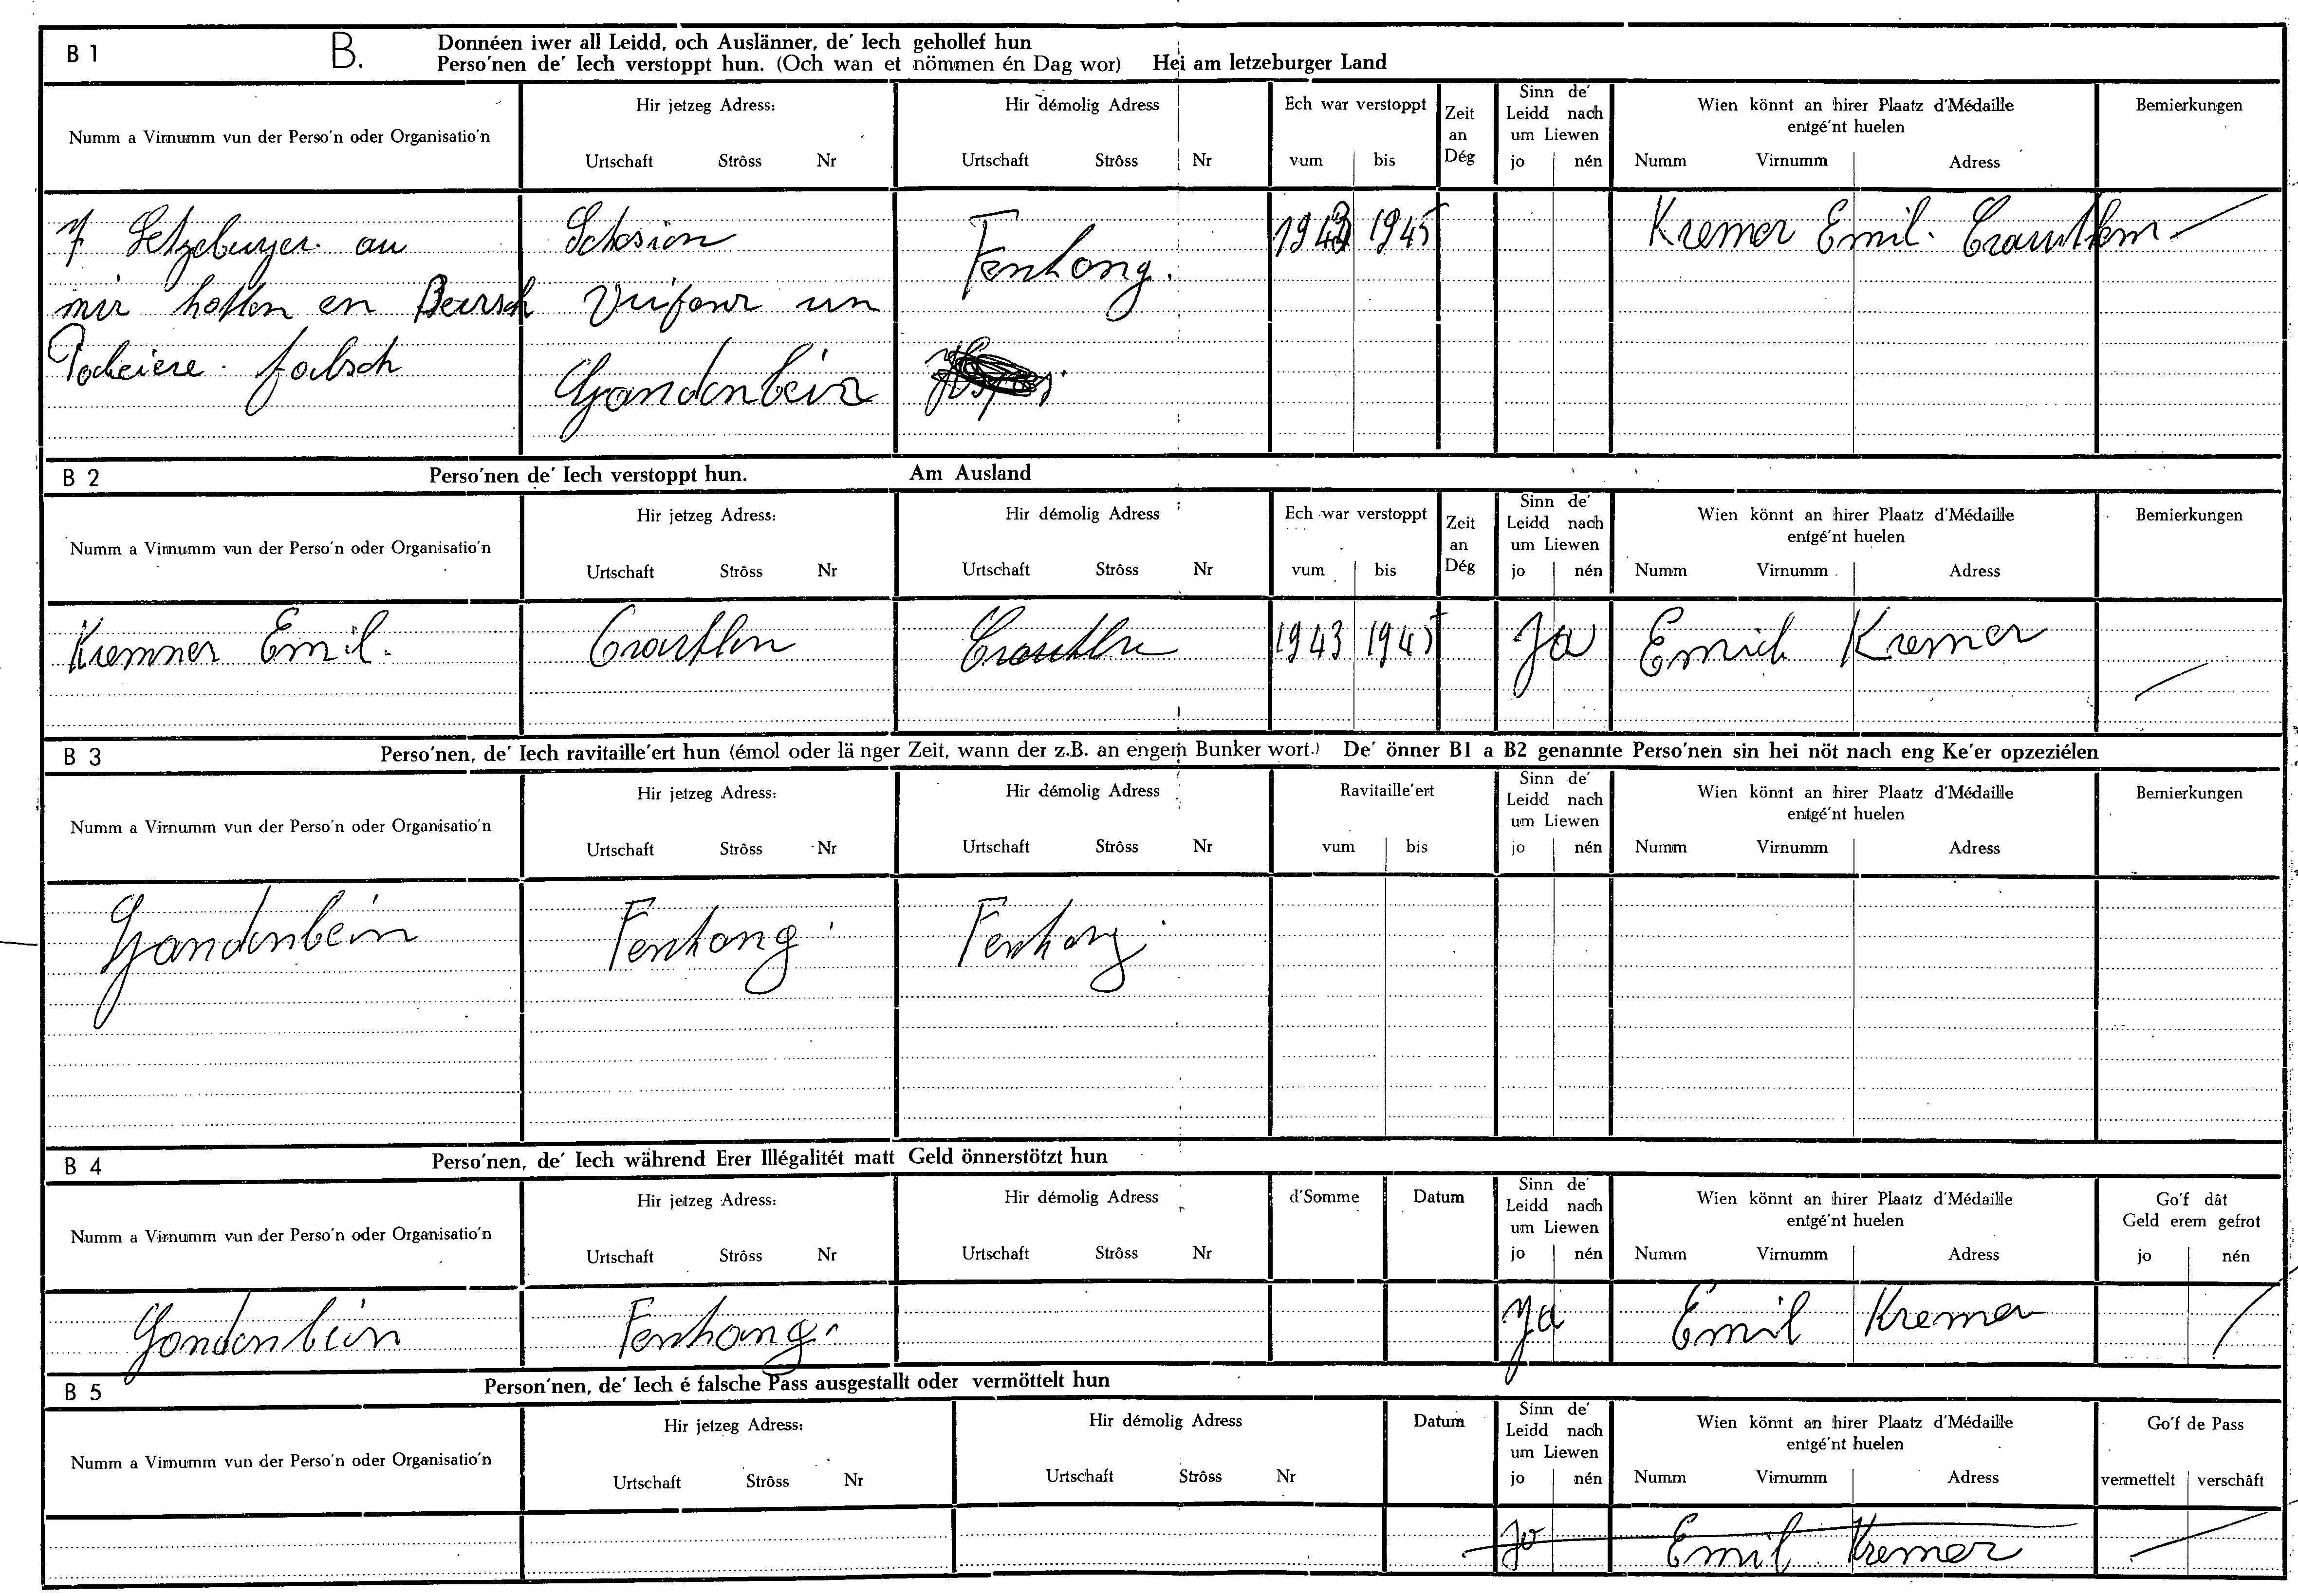 B 1 B. Donnéen iwer all Leidd, och Auslänner, de' Iech gehollef hun
Perso'nen de' Iech verstoppt hun. (Och wan et nömmen én Dag wor) Hei am letzeburger Land
Numm a Virnumm vun der Perso'n oder Organisatio'n
Hir jetzeg Adress:
Urtschaft Strôss Nr
Hir démolig Adress
Urtschaft Strôss Nr
Ech war verstoppt
vum bis
Zeit
an
Dég
Sinn de'
Leidd nach
um Liewen
jo nén
Wien könnt an hirer Plaatz d'Médaille
entgé'nt huelen
Numm Virnumm Adress
Bemierkungen
7 Letzeburger an
mir hotten en
falsch
un
Gandenbein
Fenhang.
1943 1945
Kremer Emil.
B 2 Perso'nen de' Iech verstoppt hun. Am Ausland
Numm a Virnumm vun der Perso'n oder Organisatio'n
Hir jetzeg Adress:
Urtschaft Strôss Nr
Hir démolig Adress
Urtschaft Strôss Nr
Ech war verstoppt
vum bis
Zeit
an
Dég
Sinn de'
Leidd nach
um Liewen
jo nén
Wien könnt an hirer Plaatz d'Médaille
entgé'nt huelen
Numm Virnumm Adress
Bemierkungen
Kremner Emil. 1943 1945 Ja Emich Kremer
B 3 Perso'nen, de' Iech ravitaille'ert hun (émol oder länger Zeit, wann der z.B. an engem Bunker wort.) De' önner B1 a B2 genannte Perso'nen sin hei nöt nach eng Ke'er opzeziélen
Numm a Virnumm vun der Perso'n oder Organisatio'n
Hir jetzeg Adress:
Urtschaft Strôss Nr
Hir démolig Adress
Urtschaft Strôss Nr
Ravitaille'ert
vum bis
Sinn de'
Leidd nach
um Liewen
jo nén
Wien könnt an hirer Plaatz d'Médaille
entgé'nt huelen
Numm Virnumm Adress
Bemierkungen
Gandenbein Fenhang Fenhang
B 4 Perso'nen, de' Iech während Erer Illégalitét matt Geld önnerstötzt hun
Numm a Virnumm vun der Perso'n oder Organisatio'n
Hir jetzeg Adress:
Urtschaft Strôss Nr
Hir démolig Adress
Urtschaft Strôss Nr
d'Somme Datum
Sinn de'
Leidd nach
um Liewen
jo nén
Wien könnt an hirer Plaatz d'Médaille
entgé'nt huelen
Numm Virnumm Adress
Go'f dât
Geld erem gefrot
jo nén
Gandenbein Fenhang. Ja Emil Kremer
B 5 Person'nen, de' Iech é falsche Pass ausgestallt oder vermöttelt hun
Numm a Virnumm vun der Perso'n oder Organisatio'n
Hir jetzeg Adress:
Urtschaft Strôss Nr
Hir démolig Adress
Urtschaft Strôss Nr
Datum
Sinn de'
Leidd nach
um Liewen
jo nén
Wien könnt an hirer Plaatz d'Médaille
entgé'nt huelen
Numm Virnumm Adress
Go'f de Pass
vermettelt verschâft
Jo Emil Kremer